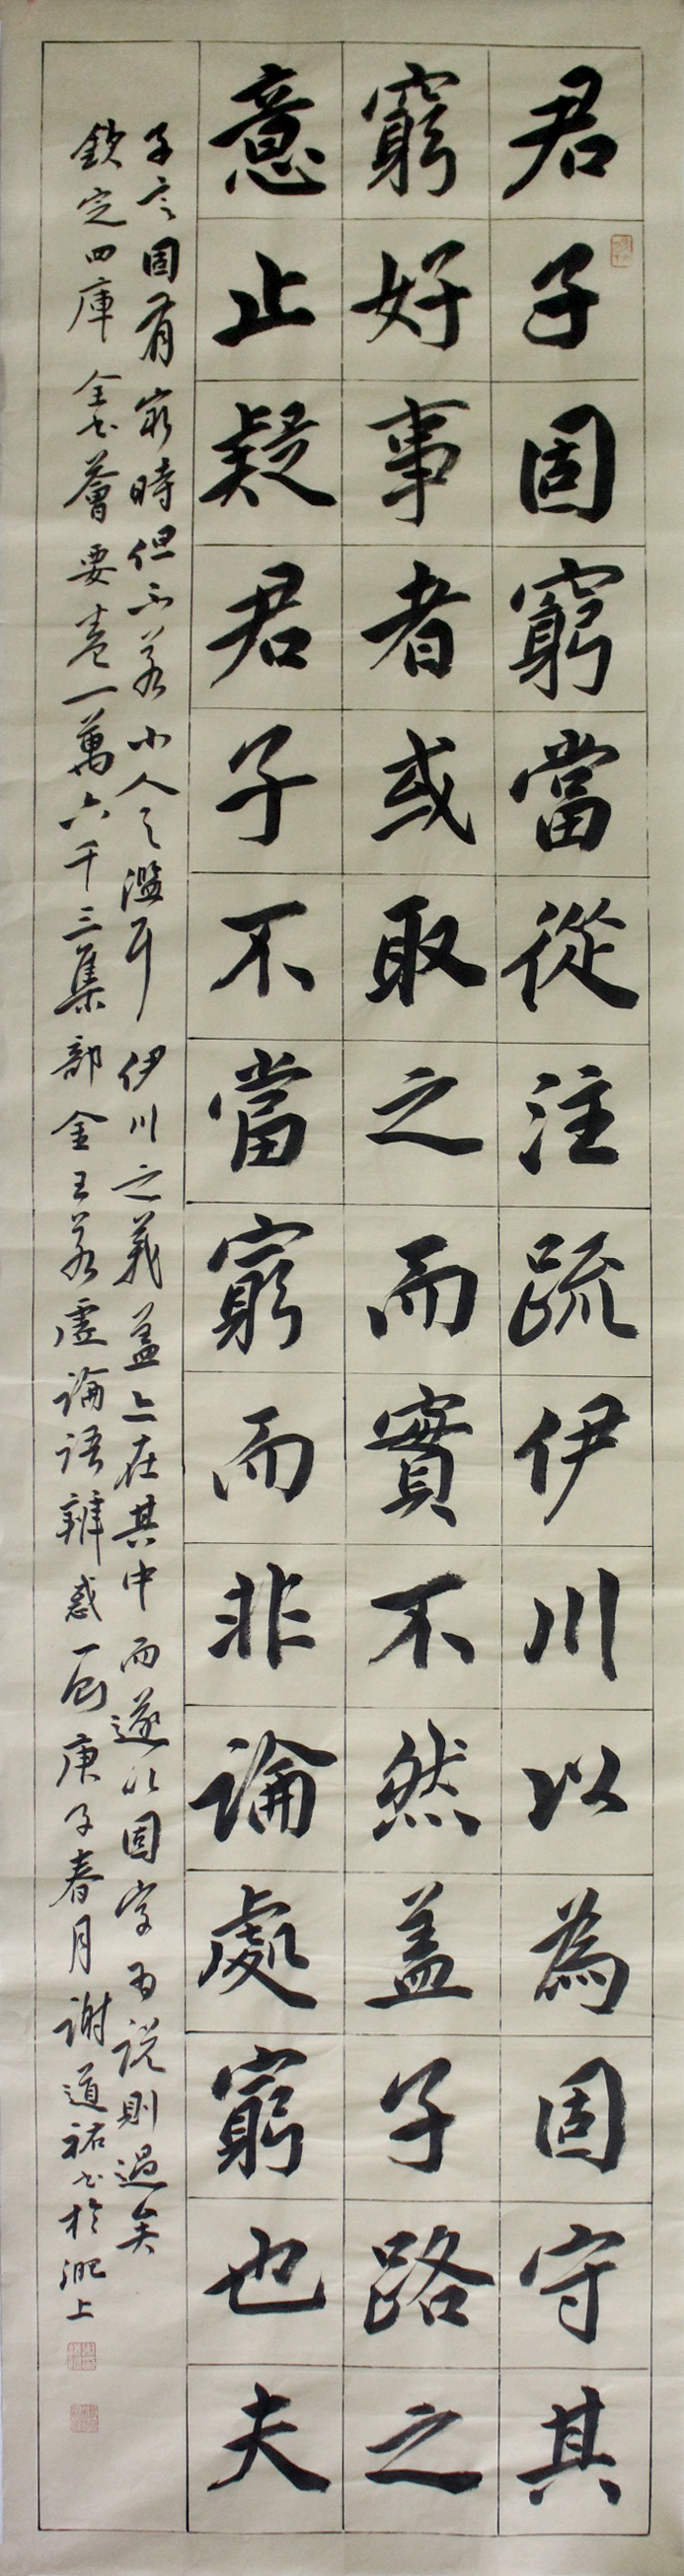 君子固窮當從注疏伊川以為固守其
窮好事者或取之而實不然盖子路之
意止疑君子不當窮而非論處窮也夫
子言固有窮時但不若小人之濫耳伊川之義盖亦在其中而遂以固字為說則過矣
欽定四庫全書薈要卷一萬六千三集部金王若虛論語辨惑一則庚子春月謝道祐書於淝上